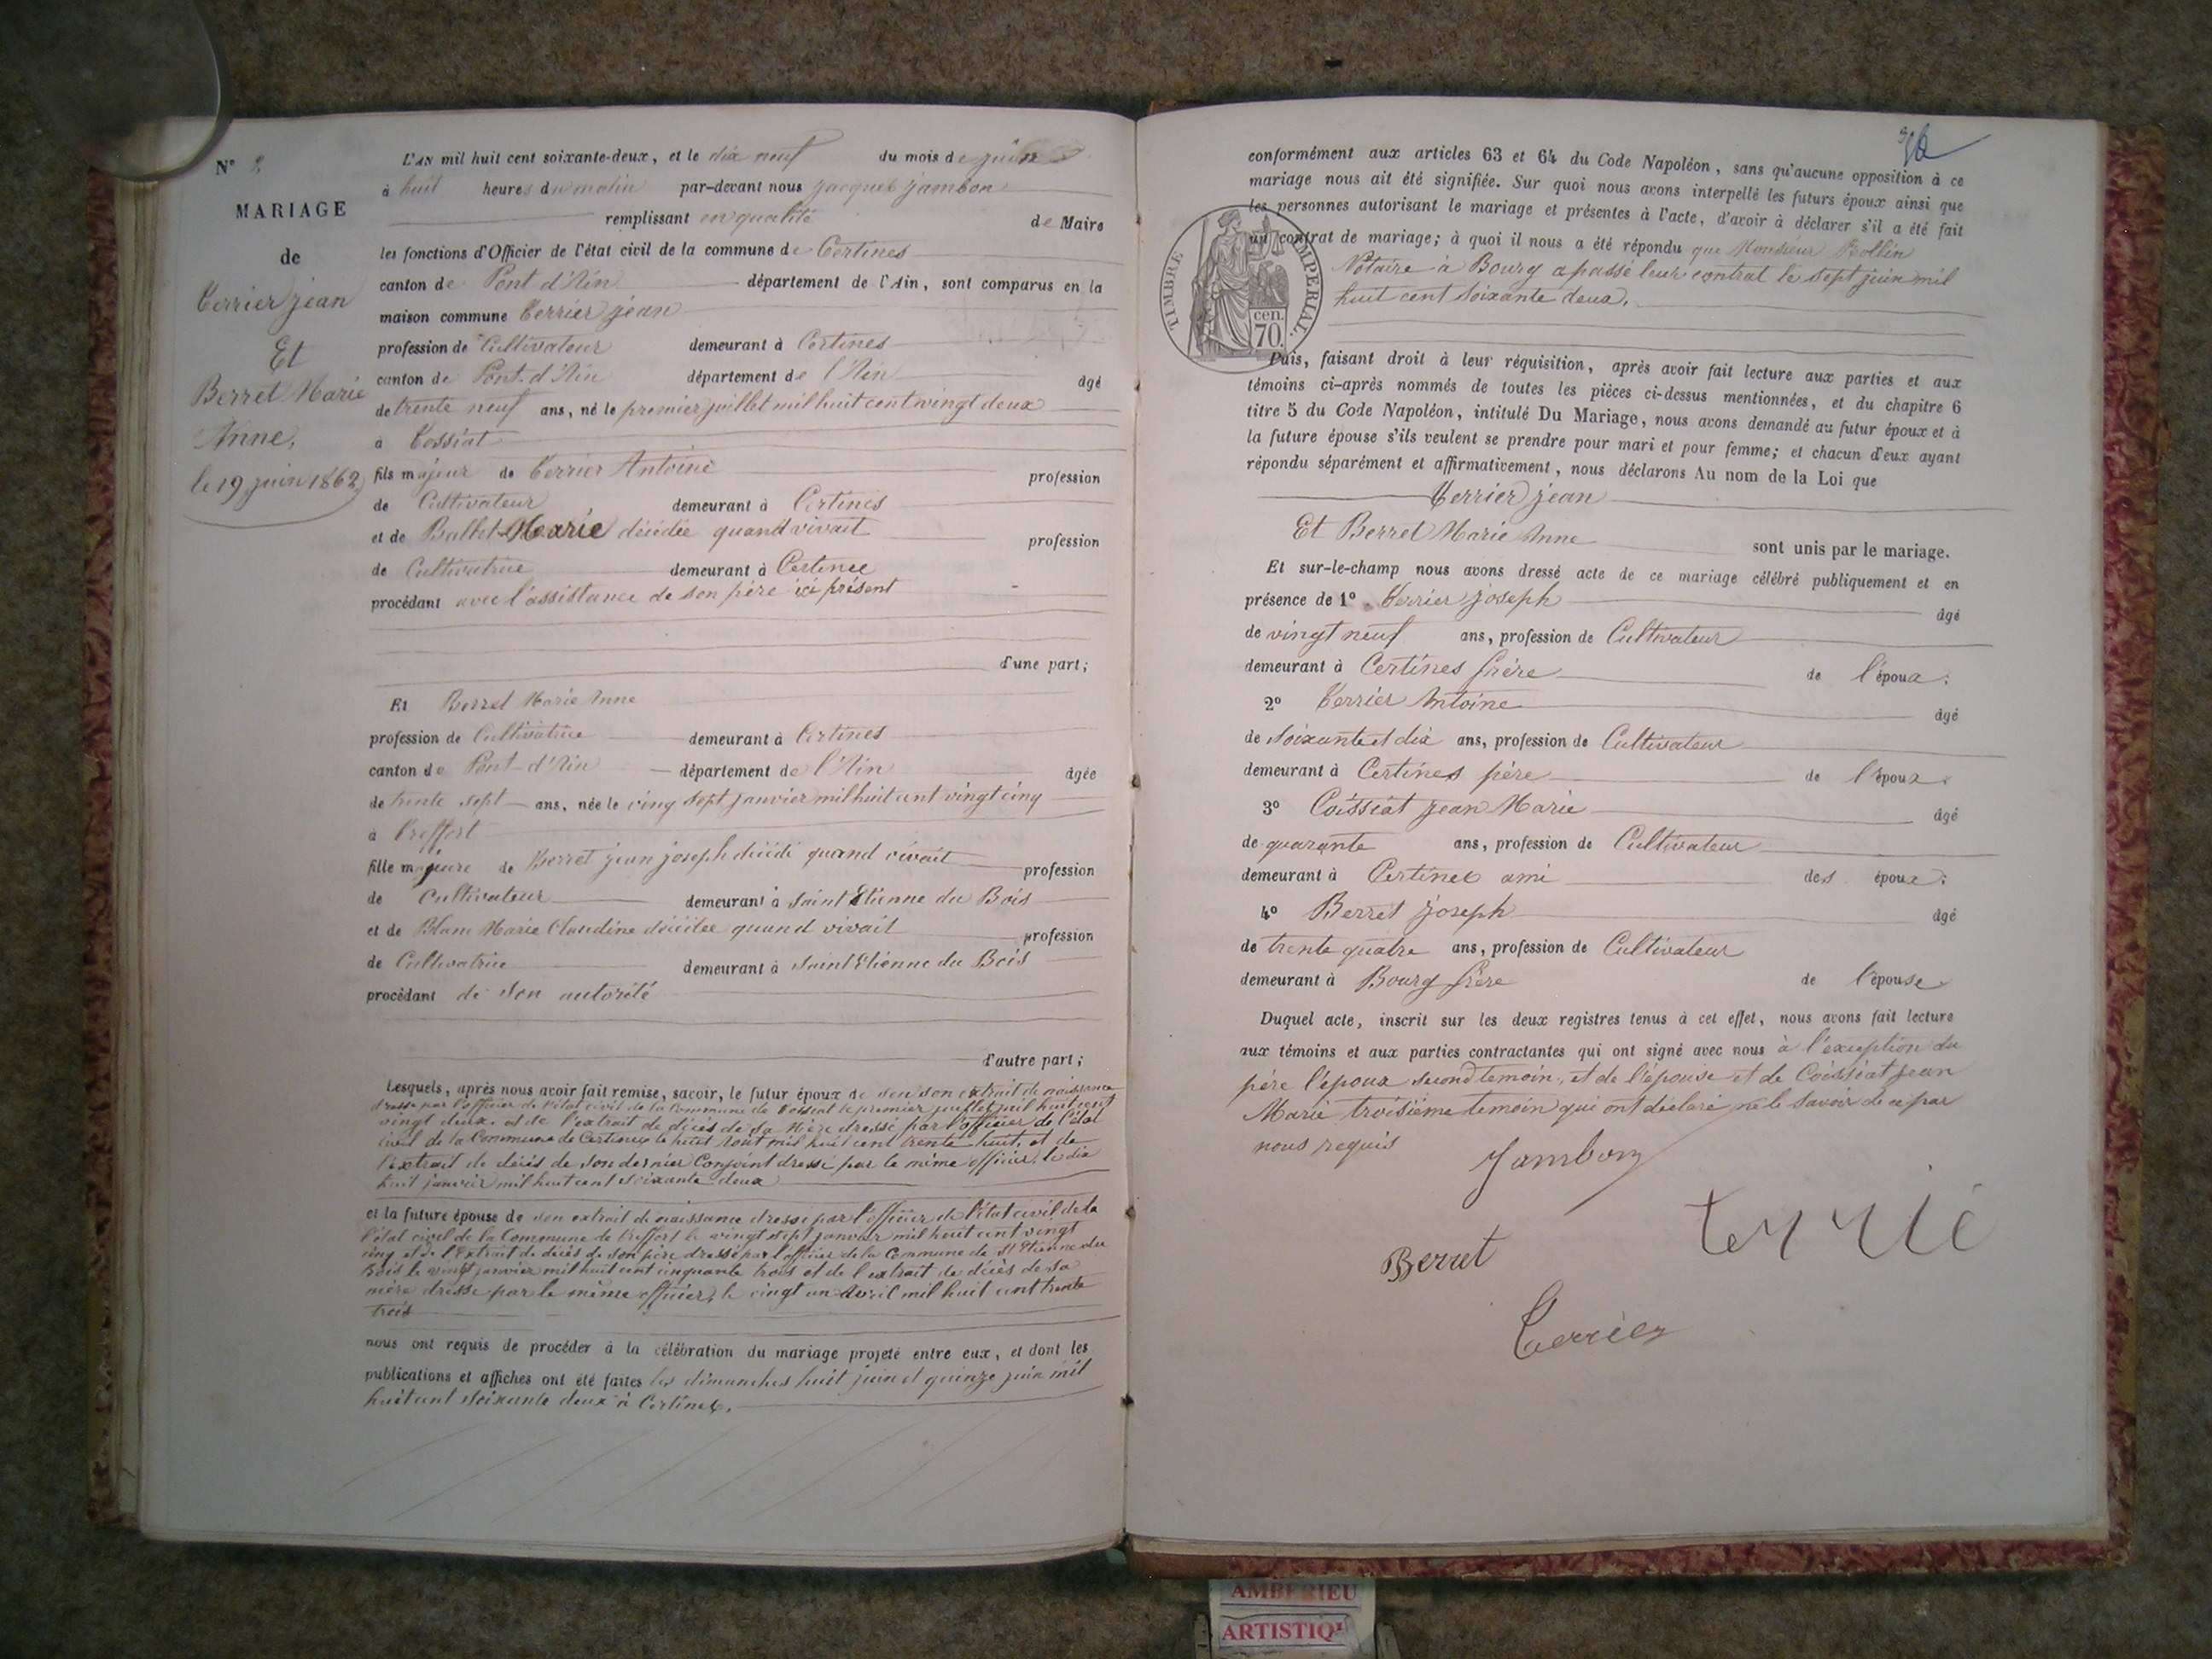 N° 2
MARIAGE
de
Terrier jean
Et
Berret Marie
Anne,
le 19 juin 1862
L'AN mil huit cent soixante-deux, et le dix neuf du mois de juin
à huit heures du matin par-devant nous jacques jambon
remplissant en qualité de Maire
les fonctions d'Officier de l'état civil de la commune de Certines
canton de Pont d'Ain département de l'Ain, sont comparus en la
maison commune Terrier jean
profession de Cultivateur demeurant à Certines
canton de Pont-d'Ain département de l'Ain âgé
de trente neuf ans, né le premier juillet mil huit cent vingt deux
à Tossiat
fils majeur de Terrier Antoine profession
de Cultivateur demeurant à Certines
et de Ballet Marie décédée quand vivait profession
de Cultivatrice demeurant à Certines
procédant avec l'assistance de son père ici présent
d'une part;
Et Berret Marie Anne
profession de Cultivatrice demeurant à Certines
canton de Pont-d'Ain département de l'Ain âgée
de trente sept ans, née le vingt sept janvier mil huit cent vingt cinq
à Treffort
fille majeure de Berret jean joseph décédé quand vivait profession
de Cultivateur demeurant à Saint Etienne du Bois
et de Blanc Marie Claudine décédée quand vivait profession
de Cultivatrice demeurant à Saint Etienne du Bois
procédant de son autorité
d'autre part;
Lesquels, après nous avoir fait remise, savoir, le futur époux de son extrait de naissance
dressé par l'officier de l'état civil de la Commune de Tossiat le premier juillet mil huit cent
vingt deux, et de l'extrait de décès de sa Mère dressé par l'officier de l'état
civil de la Commune de Certines le huit aout mil huit cent trente huit, et de
l'extrait de décès de son dernier Conjoint dressé par le même officier, le dix
huit janvier mil huit cent soixante deux
et la future épouse de son extrait de naissance dressé par l'officier de l'état civil de la
l'état civil de la Commune de Treffort le vingt sept janvier mil huit cent vingt
cinq et de l'Extrait de décès de son père dressé par l'officier de la Commune de St Etienne du
Bois le vingt janvier mil huit cent cinquante trois et de l'extrait de décès de sa
mère dressé par le même officier, le vingt un Avril mil huit cent trente
trois
nous ont requis de procéder à la célébration du mariage projeté entre eux, et dont les
publications et affiches ont été faites les dimanches huit juin et quinze juin mil
huit cent soixante deux à Certines.
conformément aux articles 63 et 64 du Code Napoléon, sans qu'aucune opposition à ce
mariage nous ait été signifiée. Sur quoi nous avons interpellé les futurs époux ainsi que
les personnes autorisant le mariage et présentes à l'acte, d'avoir à déclarer s'il a été fait
un contrat de mariage; à quoi il nous a été répondu que Monsieur Bollin
Notaire à Bourg a passé leur contrat le sept juin mil
huit cent soixante deux.
TIMBRE IMPERIAL.
cen.
70.
Puis, faisant droit à leur réquisition, après avoir fait lecture aux parties et aux
témoins ci-après nommés de toutes les pièces ci-dessus mentionnées, et du chapitre 6
titre 5 du Code Napoléon, intitulé Du Mariage, nous avons demandé au futur époux et à
la future épouse s'ils veulent se prendre pour mari et pour femme; et chacun d'eux ayant
répondu séparément et affirmativement, nous déclarons Au nom de la Loi que
Terrier jean
Et Berret Marie Anne sont unis par le mariage.
Et sur-le-champ nous avons dressé acte de ce mariage célébré publiquement et en
présence de 1° Terrier joseph âgé
de vingt neuf ans, profession de Cultivateur
demeurant à Certines frère de l'époux;
2° Terrier Antoine âgé
de soixante et dix ans, profession de Cultivateur
demeurant à Certines père de l'époux
3° Coissiat jean Marie âgé
de quarante ans, profession de Cultivateur
demeurant à Certines ami des époux;
4° Berret joseph âgé
de trente quatre ans, profession de Cultivateur
demeurant à Bourg frère de l'épouse
Duquel acte, inscrit sur les deux registres tenus à cet effet, nous avons fait lecture
aux témoins et aux parties contractantes qui ont signé avec nous à l'exception du
père l'époux second temoin, et de l'épouse et de Coissiat jean
Marie troisième temoin qui ont déclaré ne le savoir de ce par
nous requis
Jambon
terrié
Berret
Terrier
AMBERIEU
ARTISTIQ